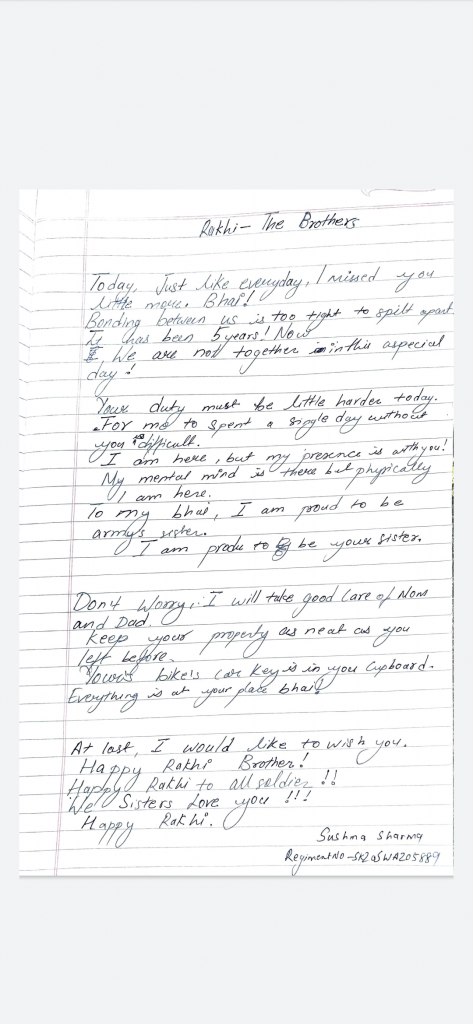 Rakhi - The Brothers
Today, Just like everyday, I missed you
little more. Bhai!
Bonding between us is too tight to spilt apart
It has been 5 years! Now
We are not together in this aspecial
day!
Your duty must be little harder today.
For me to spent a single day without
you is difficult.
I am here, but my presence is with you!
My mental mind is there but physically
I am here.
To my bhai, I am proud to be
army's sister.
I am prode to be your sister.
Don't Worry, I will take good Care of Mom
and Dad.
Keep your property as neat as you
left before.
bike's car key is in you Cupboard.
Everything is at your place bhai!
At last, I would like to wish you.
Happy Rakhi Brother!
Happy Rakhi to all soldier !!
We Sisters Love you !!!
Happy Rakhi.
Sushma Sharma
Regiment No -